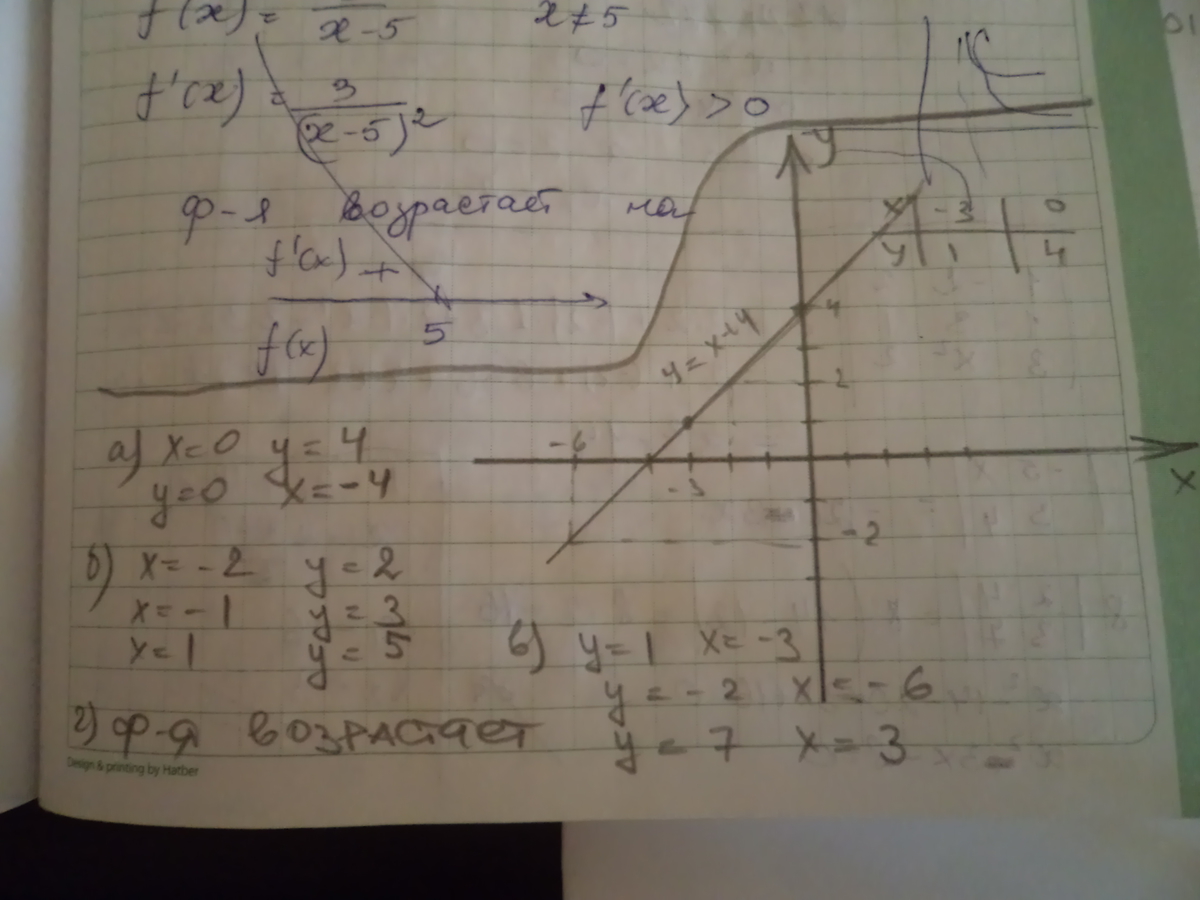 f(x) = / x-5 x≠5
f'(x) = 3/(x-5)² f'(x) > 0
ф-я возрастает на
f'(x) +
5
f(x)
y
x -3 0
y 1 4
y = x+4
4
2
-6
-3
x
-2
а) x=0 y=4
y=0 x=-4
б) x=-2 y=2
x=-1 y=3
x=1 y=5
в) y=1 x=-3
y=-2 x=-6
y=7 x=3
г) ф-я возрастает
Design & printing by Hatber